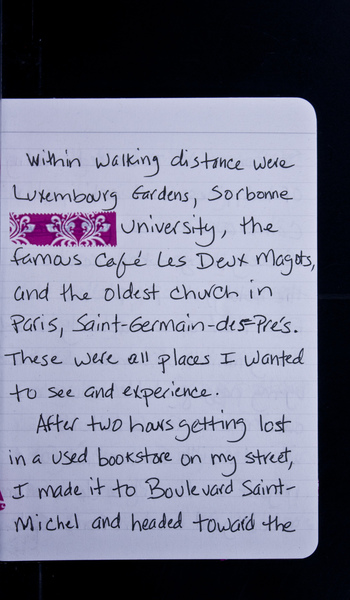 Within walking distance were
Luxembourg Gardens, Sorbonne
University, the
famous Café Les Deux Magots,
and the oldest church in
Paris, Saint-Germain-des-Prés.
These were all places I wanted
to see and experience.
After two hours getting lost
in a used bookstore on my street,
I made it to Boulevard Saint-
Michel and headed toward the